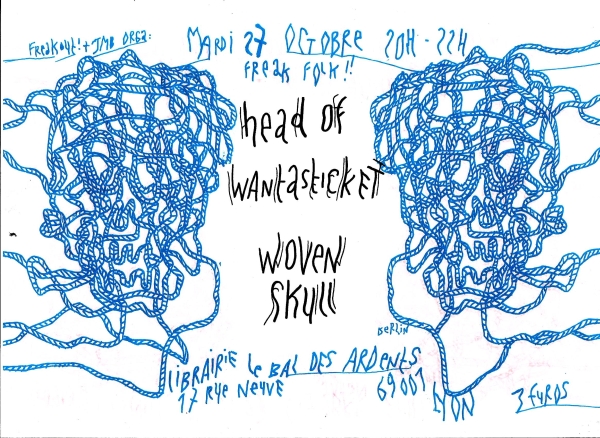 FREAKOUT! + JMB ORGA: MARDI 27 OCTOBRE 20H - 22H
FREAK FOLK!!
head OF
WANtastiCKET
WOVEN
SKUll
BERLIN
LIBRAIRIE le BAL DES ARDENTS
17 RUE NEUVE 69001 LYON 3 EUROS